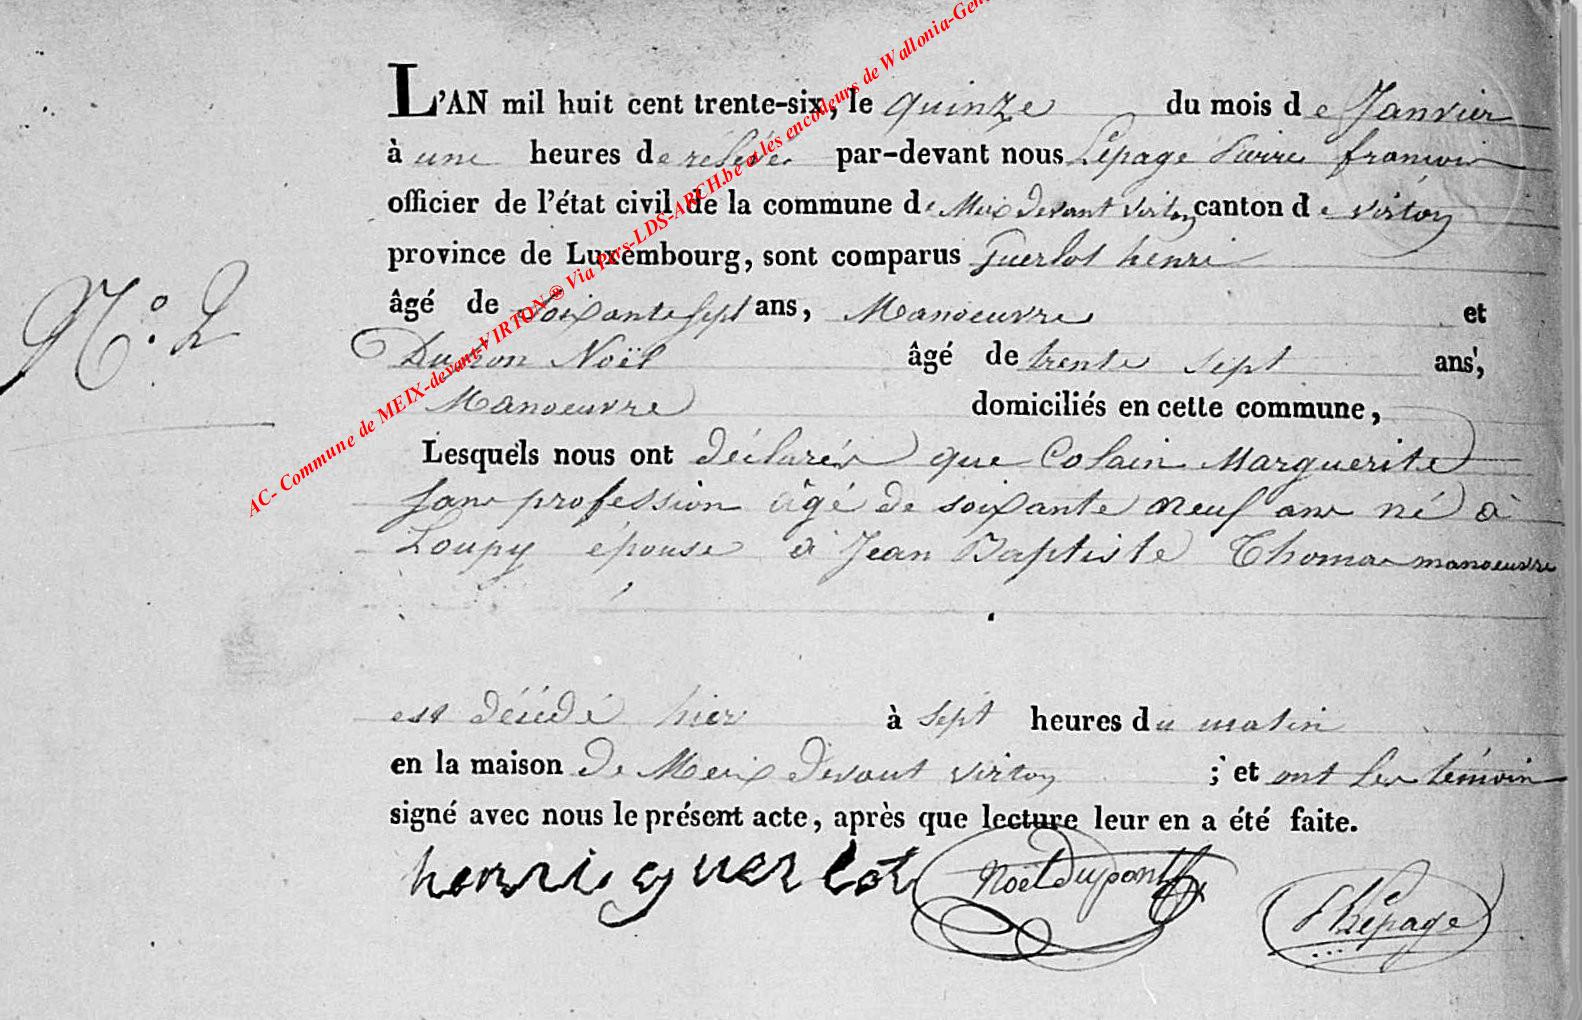 L'AN mil huit cent trente-six, le quinze du mois de Janvier
à une heures de relevée par-devant nous Lepage Pierre françois
officier de l'état civil de la commune de Meix devant virton canton de virton
province de Luxembourg, sont comparus Guerlot henri
âgé de Soixante Sept ans, Manoeuvre et
N.° 2
Dupon Noël âgé de trente sept ans,
Manoeuvre domiciliés en cette commune,
Lesquels nous ont déclarés que Colain Marguerite
sans profession âgé de soixante neuf ans né à
Loupy épouse à Jean Baptiste Thomas manoeuvre
est décédé hier à Sept heures du matin
en la maison de Meix devant virton ; et ont les témoin
signé avec nous le présent acte, après que lecture leur en a été faite.
henri guerlot Noël dupont Lepage
AC- Commune de MEIX-devant-VIRTON ® Via Pers-LDS-ARCH.be et les encodeurs de Wallonia-Gen